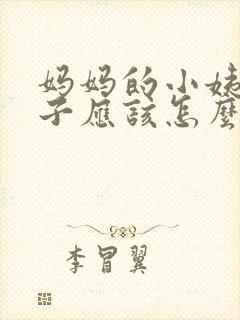 妈妈的小姨
子应该怎麼
李冒翼